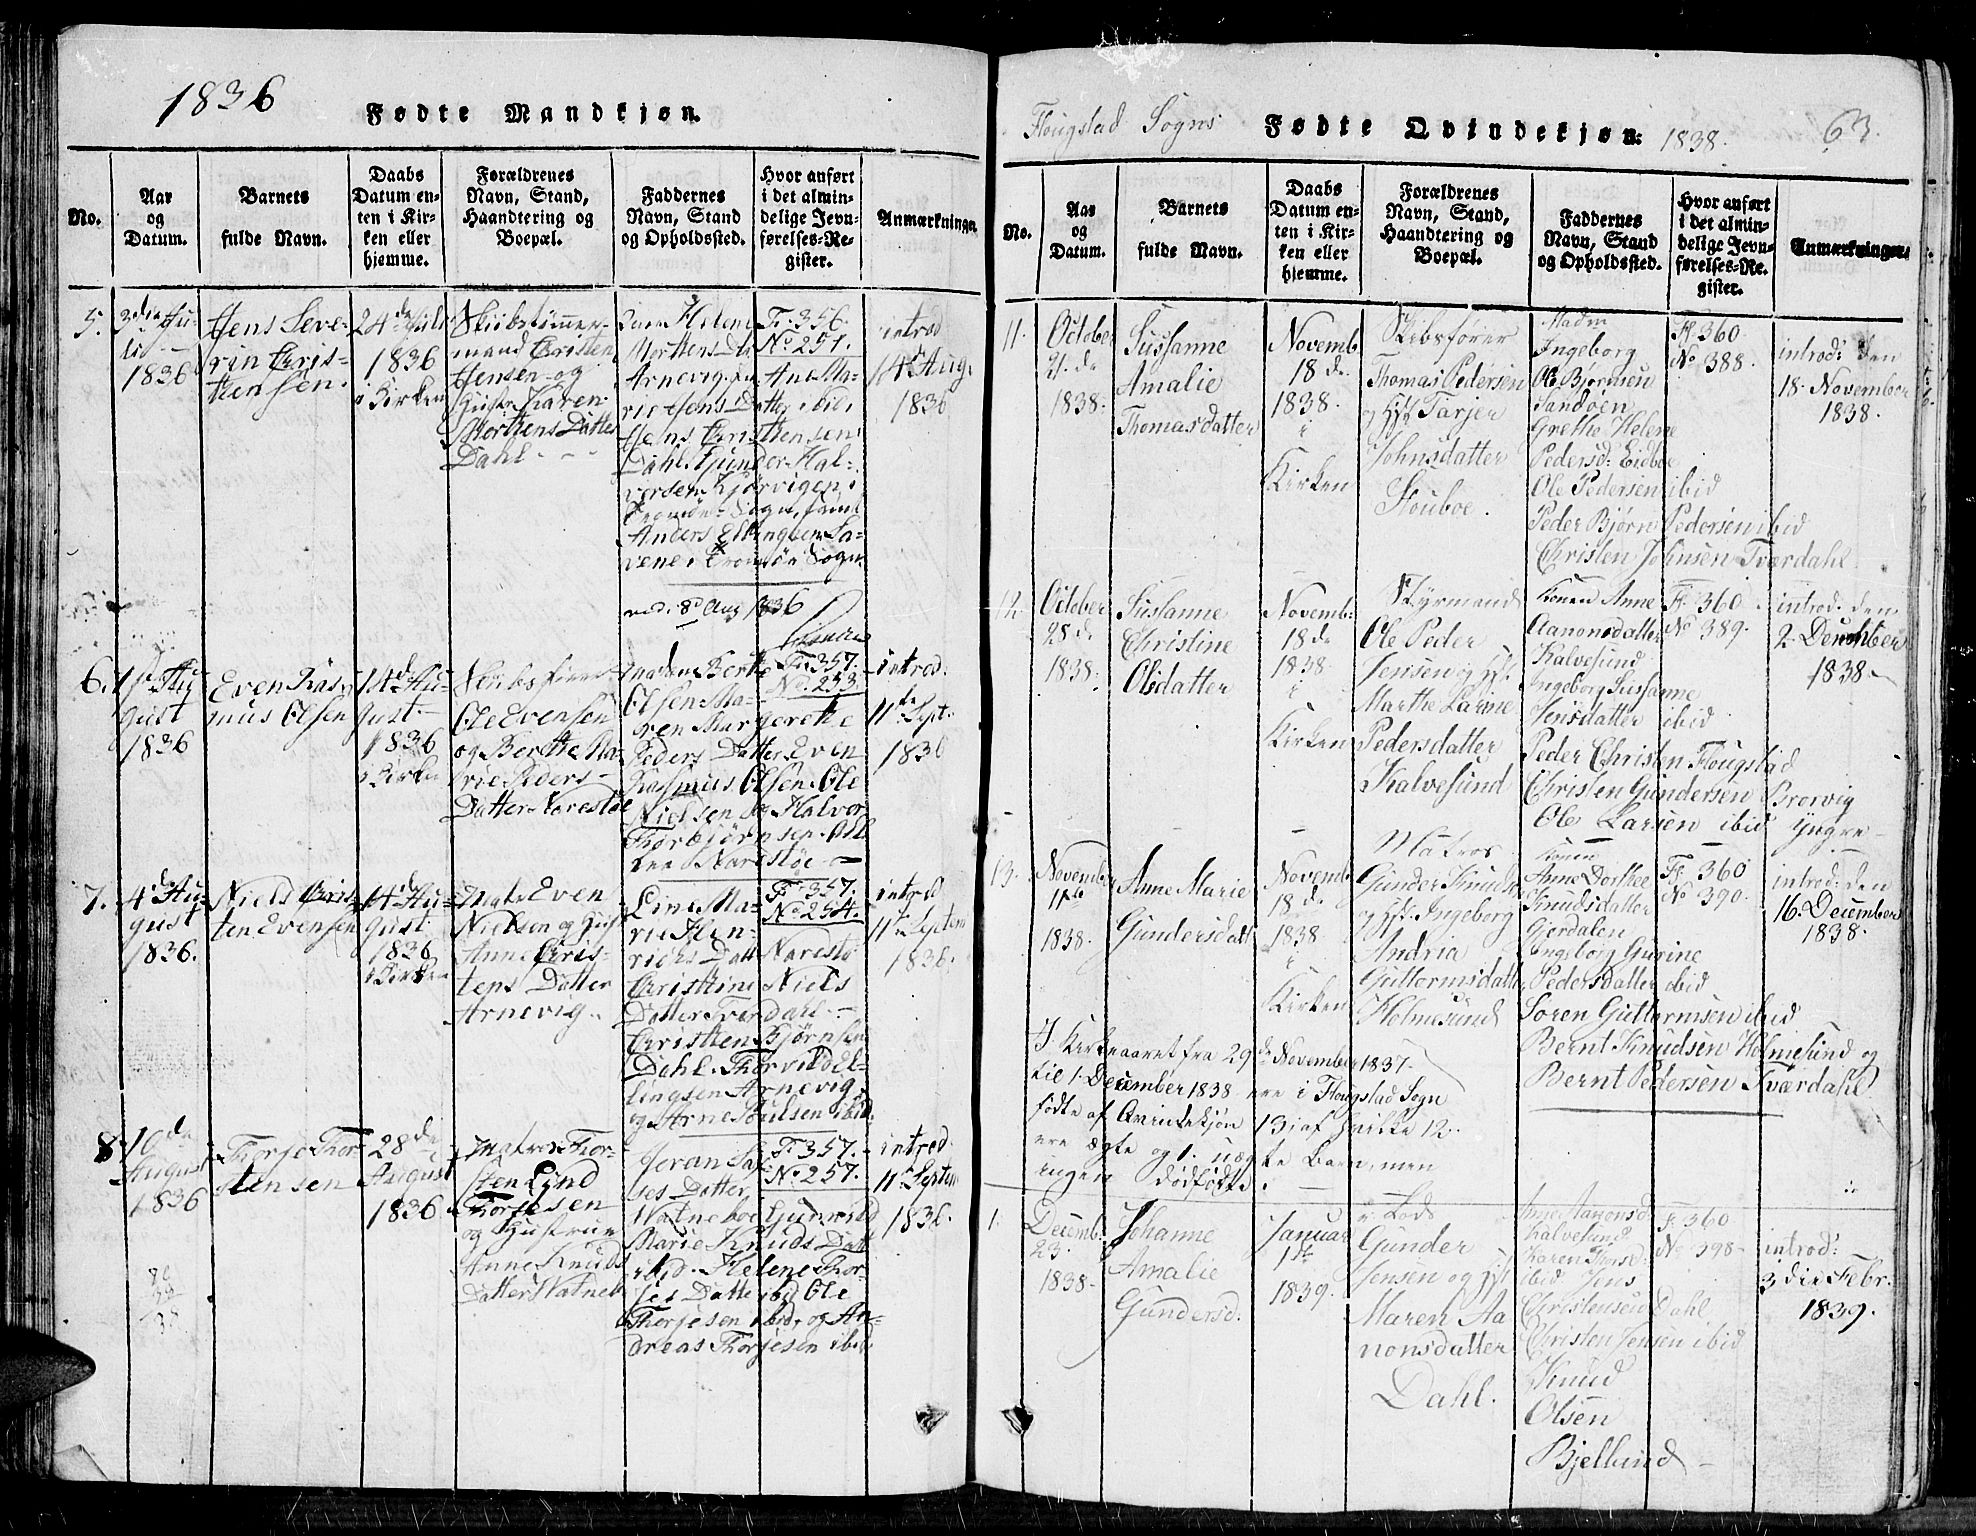 1836
Fødte Mandkjøn.
No.
Aar
og
Datum.
Barnets
fulde Navn.
Daabs
Datum en-
ten i Kir-
ken eller
hjemme.
Forældrenes
Navn, Stand,
Haandtering og
Boepæl.
Faddernes
Navn, Stand
og Opholdssted.
Hvor anført
i det almin-
delige Jevn-
førelses-Re-
gister.
Anmærkninger
5.
3die Ju-
li
1836
Jens Seve-
rin Chris-
tensen.
24de Juli
1836
i Kirken
Skibstømmer-
mand Christen
Jensen og
Hustr Karen
Morthens Datter
Dahl
Helene
Morthens
Arnevig
Ane Ma-
rie Jens Datter ibi,
Jens Christensen
Dahl, Gunder Hal-
versen Kjørvigen i
Tromøe Sogn, samt
Anders Ellingsen Sa-
vene i Tromøe Sogn
Fr: 356.
No 251.
introd
14de Aug.
1836
8d Aug 1836
6.
1ste Au-
gust
1836
Even Ras-
mus Olsen
14de Au-
gust
1836
i Kirken
Skibsfører
Ole Evensen
og Berthe Ma-
rie Peders-
Datter Narestøe
Madam Berthe
Olsen Ma-
ren Margrethe
Peders Datter Even
Rasmus Olsen Ole
Nielsen og Halvor
Thorbjørnsen All
fra Narestøe
Fr: 357.
No 253.
introd.
11te Sept.
1836
7.
4de Au-
gust
1836.
Niels Chris-
ten Evensen
14de Au-
gust
1836
i Kirken
Matr Even
Nielsen og Hust
Anne Chris-
tens Datter
Arnevig
Line Ma-
rie Hen-
richs Datt Narestø
Christine Niels
Datter Tverdahl
Christen Bjørnsen
Dahl, Thorvild El-
lingsen Arnevig,
og Arne Poulsen ibid.
Fr: 357.
No 254.
introd
11te Septem
1836.
8
10de
August
1836
Thorje Thor-
stensen
28de
August
1836
Matros Thor-
sten Lind
Thorjesen
og Hustrue
Anne Knuds
Datter Watneb
Joran
ses Datter
Watneboe Gunnild
Marie Knuds Datt
ibid. Helene Thor-
ses Datte ibid Ole
Thorjesen ibid, og An-
dreas Thorjesen ibid
Fr: 357.
No 257.
introd.
11te Septem
1836.
Flougstad Sogns
Fødte Qvindekjøn:
1838.
63.
No.
Aar
og
Datum.
Barnets
fulde Navn.
Daabs
Datum en-
ten i Kir-
ken eller
hjemme.
Forældrenes
Navn, Stand,
Haandtering og
Boepæl.
Faddernes
Navn, Stand
og Opholdssted.
Hvor anført
i det almin-
delige Jevn-
førelses-Re-
gister.
Anmærkninger.
11.
October
21. de
1838.
Susanne
Amalie
Thomasdatter
Novemb
18 de
1838.
i
Kirken
Skibsfører
Thomas Pedersen
og Hst Tarjer
Johnsdatter
Stouboe.
Madm
Ingeborg
Ole Bjørnsen
Sandøen
Grethe Helene
Pedersd: Eidboe
Ole Pedersen ibid
Peder Bjørn Pedersen ibid
Christen Johnsen Tværdahl
Fr. 360
No 388.
introd: den
18. November
1838.
12.
October
25 de
1838.
Susanne
Christine
Olsdatter
Novemb:
18 de
1838
i
Kirken
Styrmand
Ole Peder
Jensen og Hst
Marthe Larine
Pedersdatter
Kalvesund
Konen Anne
Aanonsdatter
Kalvesund
Ingeborg Susanne
Jensdatter ibid
Peder Christen Flougstad
Christen Gundersen Brorvig
Ole Larsen ibid Yngre
Fr. 360
No 389.
introd. den
2. December
1838
13.
November
11te
1838.
Anne Marie
Gundersdatt
Novemb
18 de
1838
i
Kirken
Matros
Gunder Knuds
og Hst. Ingeborg
Andria
Guttormsdatt
Holmesund
Konen
Anne Dorthee
Knudsdatter
Gjerdalen
Ingeborg Gurine
Pedersdatter ibid
Soren Guttormsen ibid
Bernt Knudsen Holmesund og
Bernt Pedersen Tværdahl
Fr. 360
No 390.
introd: den
16. December
1838.
I Kirkeaaret fra 29de November 1837
til 1. December 1838 ere i Flougstad Sogn
fødte af Qvindekjøn 13: af hvilke 12
ere ægte og 1. uægte Barn, men
ingen dødfødte.
1.
Decemb.
23.
1838
Johanne
Amalie
Gundersd.
Januar
1ste
1839.
Lods
Gunder
Jensen og Hst
Maren Aa
nonsdatter
Dahl.
Anne Aanonsd
Kalvesund
Karen Thorsd
ibid Jens
Christensen Dahl
Christen Jensen ibid
Knud
Olsen
Bjellund
Fr. 360
No 398
introd:
3die Febr.
1839.